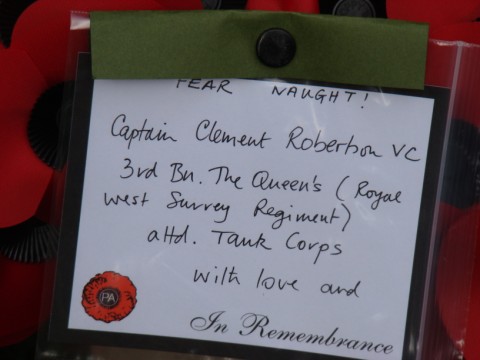 FEAR NAUGHT!
Captain Clement Robertson VC
3rd Bn. The Queen's (Royal
West Surrey Regiment)
attd. Tank Corps
with love and
PA
In Remembrance